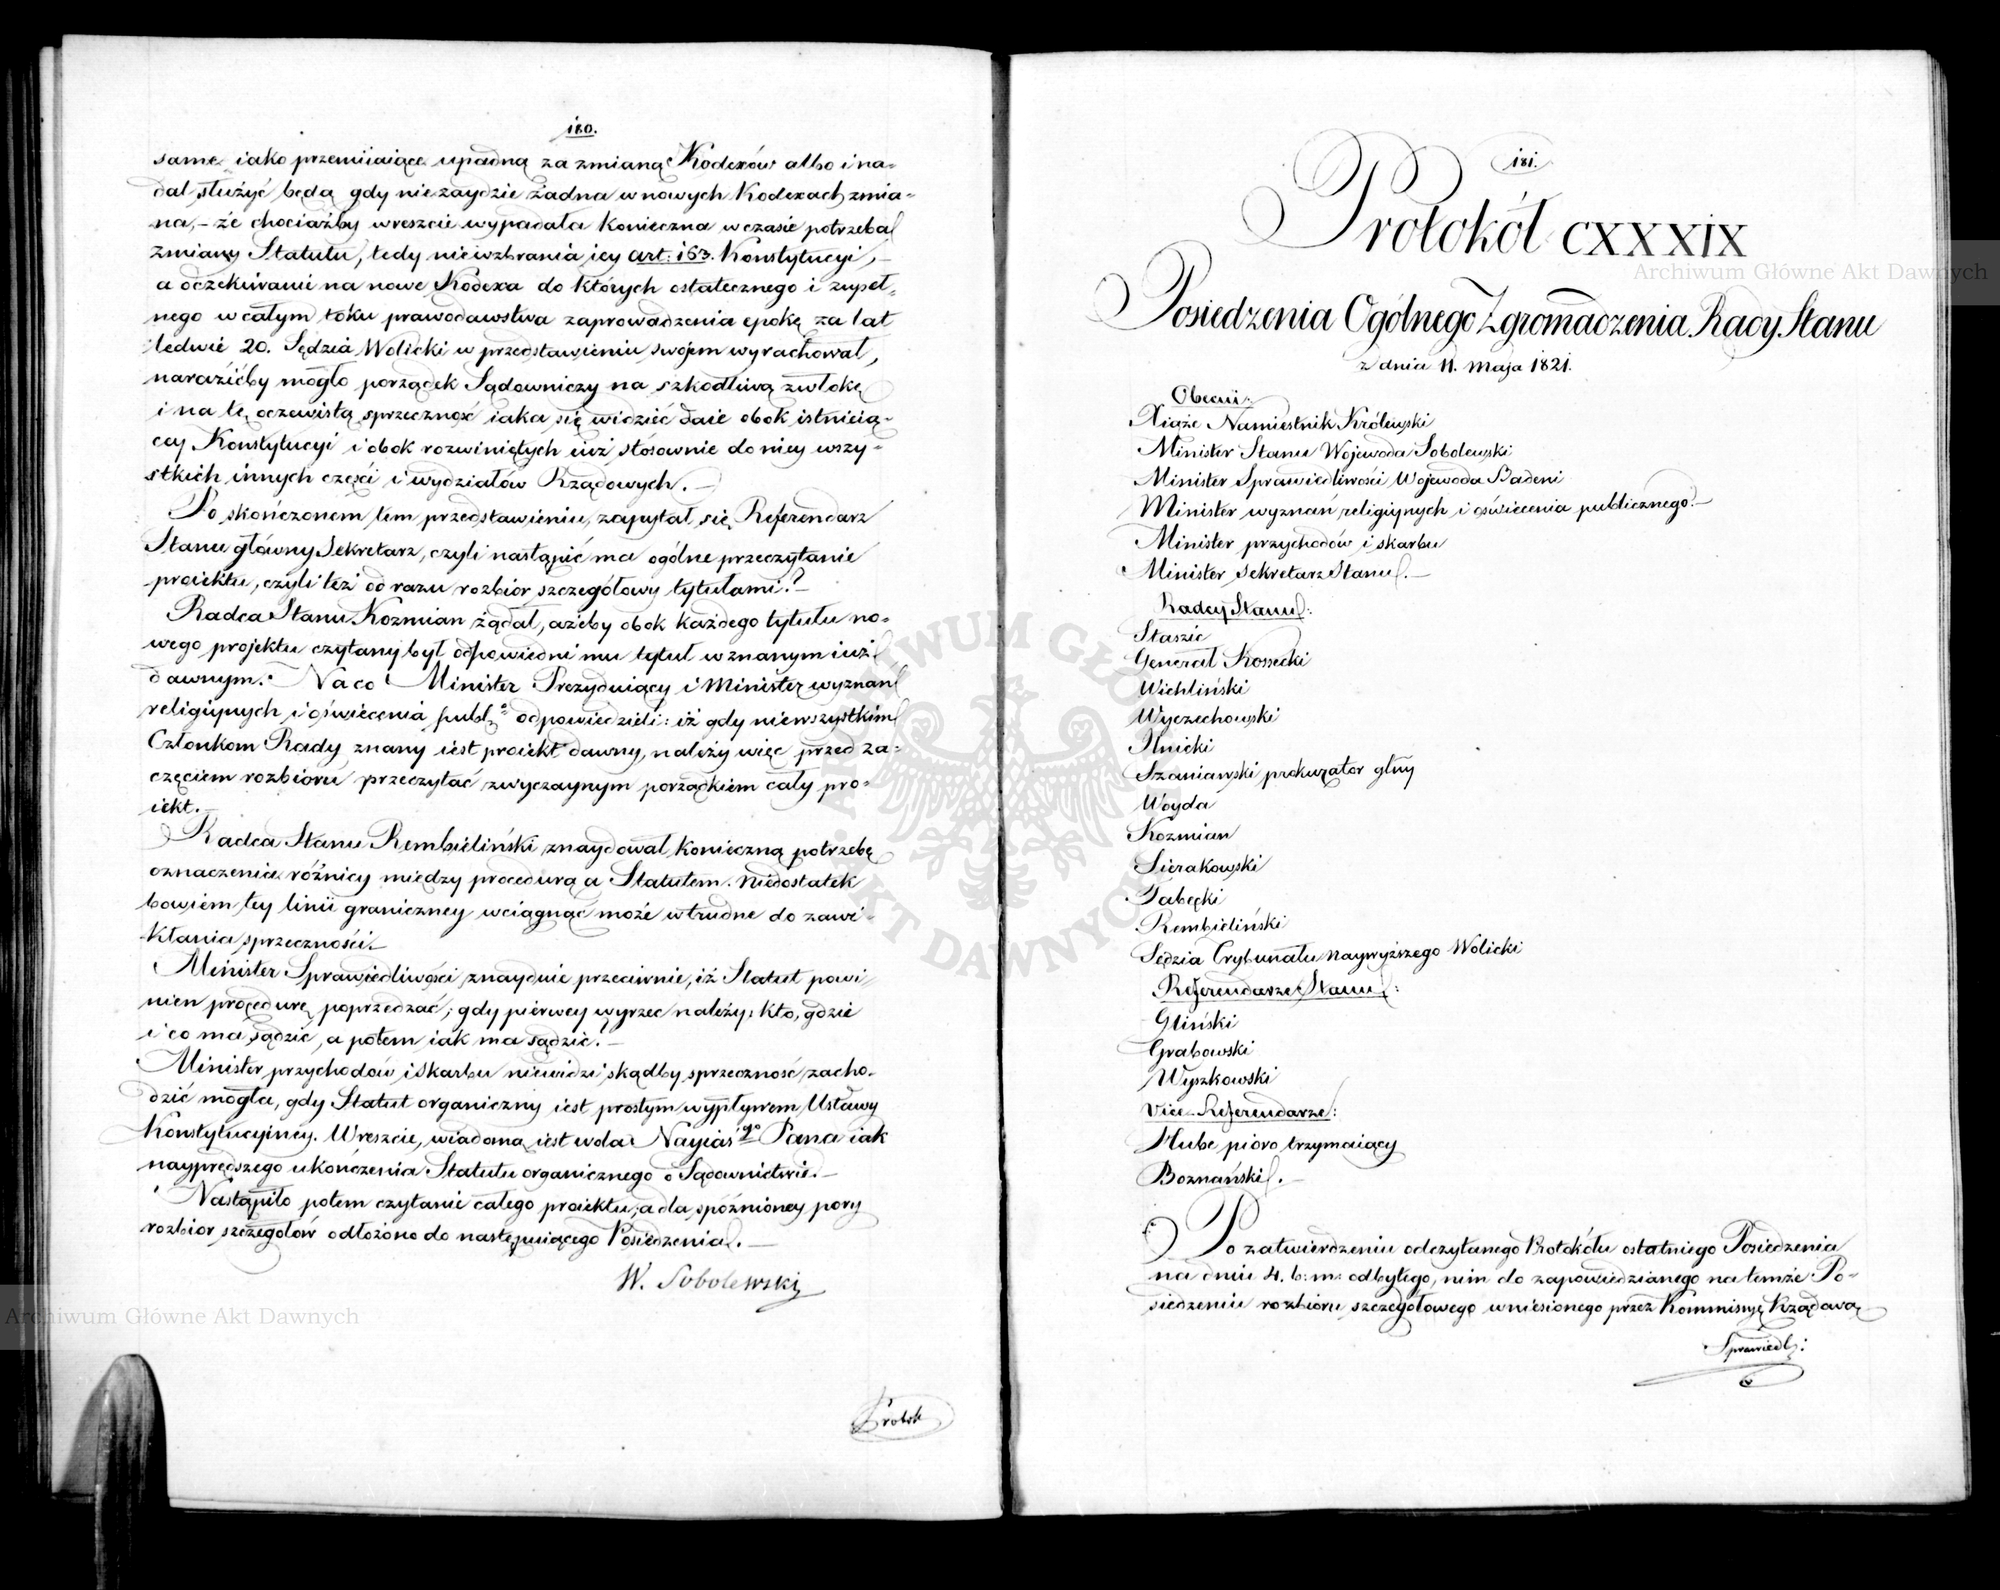 180.
same iako przemiiaiące upadną za zmianą Kodexów albo i na-
dal służyć będą gdy nie zaydzie żadna w nowych Kodexach zmia-
na, - że chociażby wreszcie wypadała konieczna w czasie potrzeba
zmiany Statutu, tedy niewzbrania iey art: 163. Konstytucyi, -
a oczekiwanie na nowe Kodexa do których ostatecznego i zupeł-
nego w całym toku prawodawstwa zaprowadzenia epokę za lat
ledwie 20. Sędzia Wolicki w przedstawieniu swojem wyrachował,
narazićby mogło porządek Sądowniczy na szkodliwą zwłokę
i na tę oczewistą sprzeczność iaka się widzieć daie obok istnieią-
cey Konstytucyi i obok rozwiniętych iuż stosownie do niey wszy-
stkich innych części i wydziałów Rządowych. -
Po skończonem tem przedstawieniu, zapytał się Referendarz
Stanu główny Sekretarz, czyli nastąpić ma ogólne przeczytanie
proiektu, czyli też od razu rozbiór szczegółowy tytułami? -
Radca Stanu Kozmian żądał, ażeby obok każdego tytułu no-
wego projektu czytany był odpowiedni mu tytuł w znanym iuż
dawnym. Na co Minister Prezyduiący i Minister wyznań
religiynych i oświecenia publ: odpowiedzieli: iż gdy niewszystkim
Członkom Rady znany iest proiekt dawny, należy więc przed za-
częciem rozbioru przeczytać zwyczaynym porządkiem cały pro-
iekt. -
Radca Stanu Rembieliński znaydował konieczną potrzebę
oznaczenia różnicy między procedurą a Statutem. Niedostatek
bowiem tey linii graniczney wciągnąć może w trudne do zawi-
kłania sprzeczności. -
Minister Sprawiedliwości znayduie przeciwnie, iż Statut powi-
nien procedurę poprzedzać; gdy pierwey wyrzec należy: kto, gdzie
i co ma sądzić, a potem iak ma sądzić. -
Minister przychodów i Skarbu niewidzi skądby sprzeczność zacho-
dzić mogła, gdy Statut organiczny iest prostym wypływem Ustawy
Konstytucyiney. Wreszcie, wiadomą iest wola Nayiaś go Pana iak
nayprędszego ukończenia Statutu organicznego o Sądownictwie. -
Nastąpiło potem czytanie całego proiektu, a dla spóźnioney pory
rozbiór szczegółów odłożono do następuiącego Posiedzenia. -
W. Sobolewski
Protok
181.
Protokół CXXXIX
Posiedzenia Ogólnego Zgromadzenia Rady Stanu
z dnia 11. Maja 1821.
Obecni:
Xiąże Namiestnik Królewski
Minister Stanu Wojewoda Sobolewski
Minister Sprawiedliwości Wojewoda Badeni
Minister wyznań religiynych i oświecenia publicznego. -
Minister przychodów i skarbu
Minister Sekretarz Stanu. -
Radcy Stanu:
Staszic
Generał Kossecki
Wichliński
Wyczechowski
Lnicki
Szaniawski prokurator głny
Woyda
Kozmian
Sierakowski
Tabęcki
Rembieliński
Sędzia Trybunału naywyższego Wolicki
Referendarze Stanu:
Gliński
Grabowski
Wyszkowski
Vice-Referendarze:
Hube pióro trzymaiący
Boznański. -
Po zatwierdzeniu odczytanego Protokółu ostatniego Posiedzenia
na dniu 4. b: m: odbytego, nim do zapowiedzianego na temże Po-
siedzeniu rozbioru szczegółowego wniesionego przez Kommissyę Rządową
Sprawiedl:
Archiwum Główne Akt Dawnych
Archiwum Główne Akt Dawnych
ARCHIWUM GŁÓWNE AKT DAWNYCH